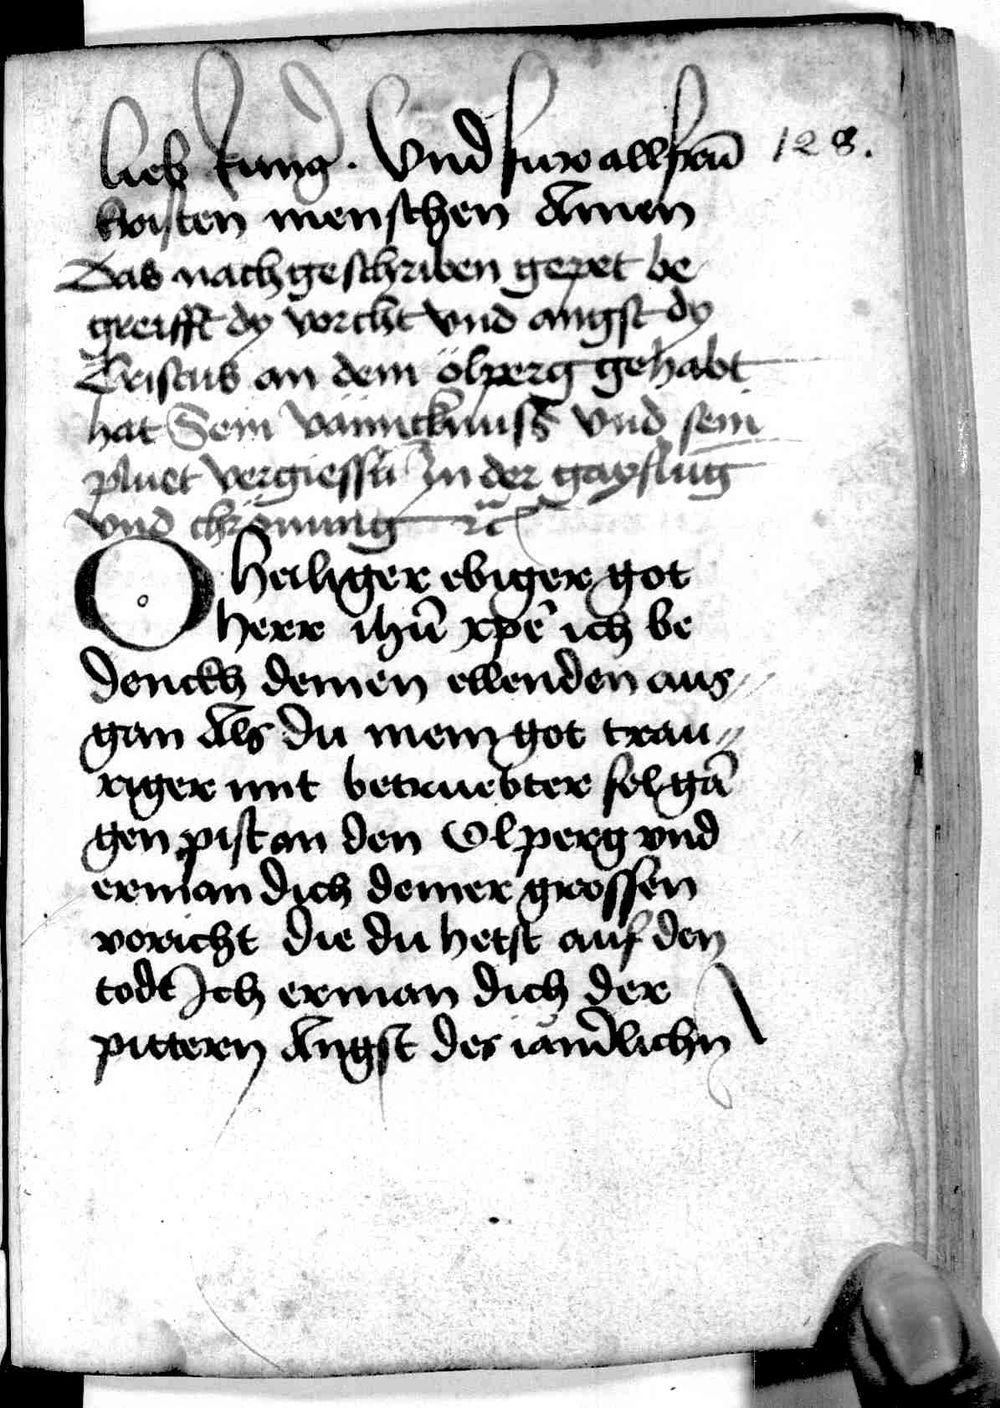 lieb kung. Vnd fur all frau̅ 128.
kristen menschen Amen
Das nachgeschriben gepet be
greifft dy vorcht vnd angst dy
Cristus an dem ölperg gehabt
hat Sein vänncknuss vnd sein
pluet vergiessn̅ In der gayslu̅g
vnd chrönung ꝛc̅
O Heiliger ebiger got
herr ihu̅ xpe̅ ich be
denckh deinen ellenden aus//
gan Als du mein got trau//
riger mit betruebter sel ga̅
gen pist an den Olperg vnd
erman dich deiner grossen
voricht die du hetst auf den
todt Ich erman dich der
pittern Angst des iam̅erlichn